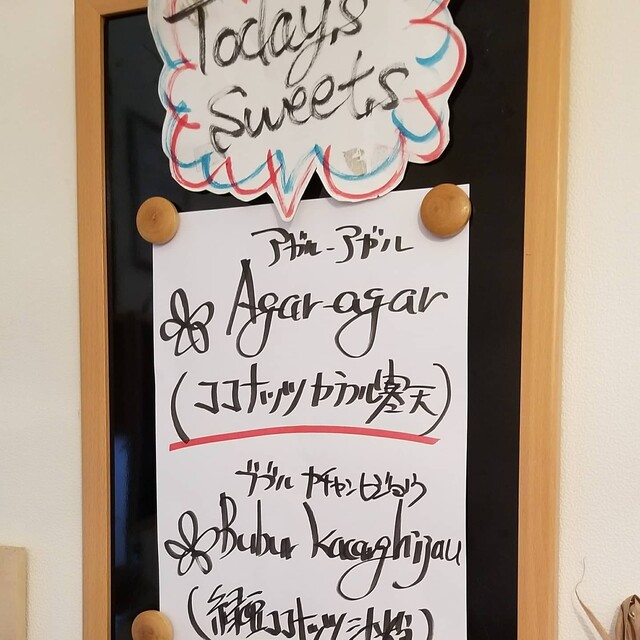 Today's
Sweets
アガル-アガル
Agar-agar
(ココナッツカラフル寒天)
ブブル カチャンヒジョウ
Bubur kacanghijau
(緑豆ココナッツ汁粉)